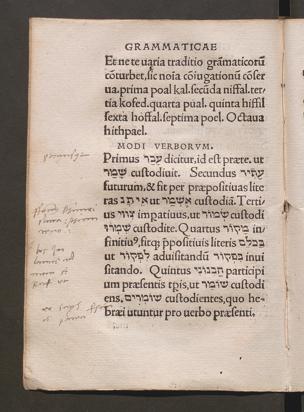 GRAMMATICAE
Et ne te uaria traditio grãmaticorũ
cõturbet, sic noĩa cõiugationũ cõser
ua. prima poal kal. secũda niffal. ter⸗
tia kofed. quarta pual. quinta hiffil
sexta hoffal. septima poel. Octaua
hithpael.
MODI VERBORVM.
Primus עבר dicitur, id est præte. ut
שמר custodiuit. Secundus עתיד
futurum, & fit per præpositiuas lite
ras איתנ ut אשמר custodiã. Tertiⸯ
us צווי impatiuus, ut שמור custodi
שמרו custodite. Quartus מקור in⸗
finitiuꝰ, fitq; ppositiuis literis בכלם
ut לפקוד aduisitandũ בפקוד inui
sitando. Quintus בינוני participi
um præsentis tpis, ut שומר custodi
ens, שומרים custodientes, quo he⸗
bræi utuntur pro uerbo præsenti.